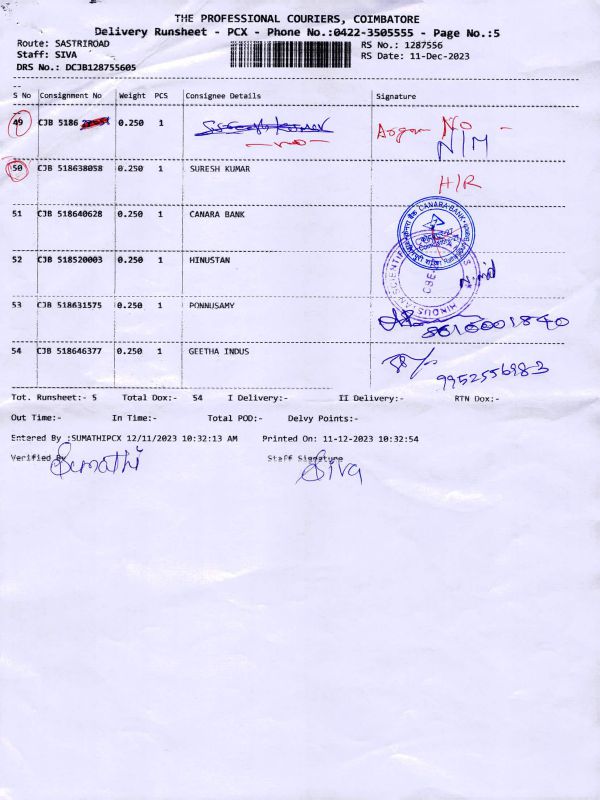 THE PROFESSIONAL COURIERS, COIMBATORE
Delivery Runsheet - PCX - Phone No.:0422-3505555 - Page No.:5
Route: SASTRIROAD RS No.: 1287556
Staff: SIVA RS Date: 11-Dec-2023
DRS No.: DCJB128755605
S No Consignment No Weight PCS Consignee Details Signature
49 CJB 5186 0.250 1 No -
N/M
50 CJB 518638058 0.250 1 SURESH KUMAR H/R
51 CJB 518640628 0.250 1 CANARA BANK CANARA BANK
52 CJB 518520003 0.250 1 HINUSTAN
53 CJB 518631575 0.250 1 PONNUSAMY
54 CJB 518646377 0.250 1 GEETHA INDUS 9952556983
Tot. Runsheet:- 5 Total Dox:- 54 I Delivery:- II Delivery:- RTN Dox:-
Out Time:- In Time:- Total POD:- Delvy Points:-
Entered By :SUMATHIPCX 12/11/2023 10:32:13 AM Printed On: 11-12-2023 10:32:54
Verified By Staff Signature
Sumathi Siva